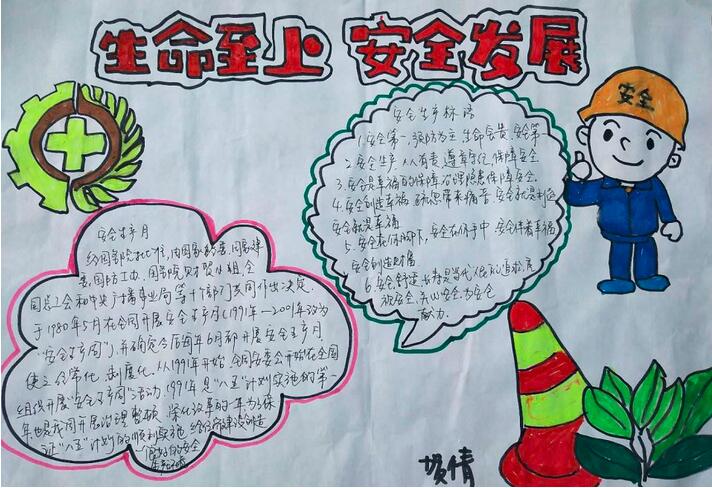 生命至上 安全发展
安全
安全生产标语
1.安全第一,预防为主,生命宝贵,安全第一
2.安全生产,人人有责,遵章守纪,保障安全
3.安全是幸福的保障,治理隐患保障安全.
4.安全创造幸福,疏忽带来痛苦,安全就是利益
安全就是幸福
5.安全在你脚下,安全在你手中,安全伴着幸福
安全创造
6.安全
为安全
献力.
安全生产月
经国务院批准,由国家经委、国家建
委、国防工办、国务院财贸小组、全
国总工会和中央广播事业局等十个部门共同作出决定
于1980年5月在全国开展安全生产月(1991年—2001年改为
"安全生产周"),并确定今后每年6月都开展安全生产月
使之经常化、制度化.从1991年开始,全国安委会开始在全国
组织开展"安全生产周"活动.1991年是"八五"计划实施的第一
年,也是我国开展治理整顿、深化改革的一年,为了保
证"八五"计划的顺利实施,给经济建设创造
良好的安全